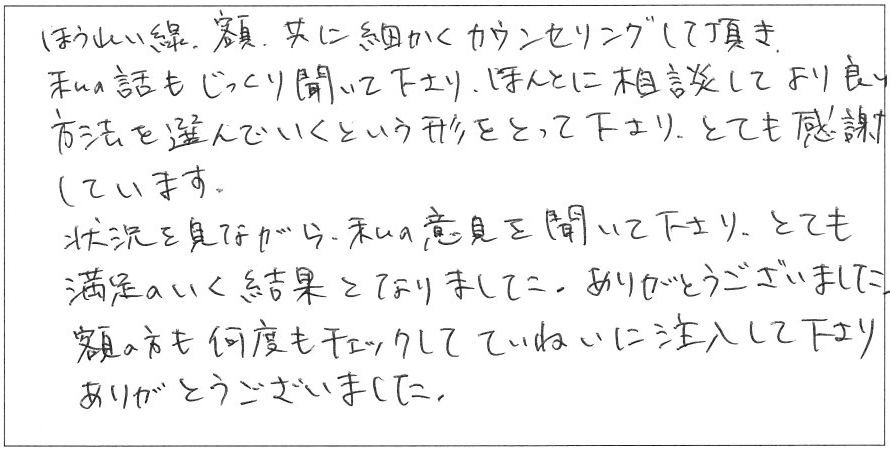 ほうれい線、額、共に細かくカウンセリングして頂き、
私の話もじっくり聞いて下さり、ほんとに相談してより良い
方法を選んでいくという形をとって下さり、とても感謝
しています。
状況を見ながら、私の意見を聞いて下さり、とても
満足のいく結果となりました。ありがとうございました。
額の方も何度もチェックしてていねいに注入して下さり
ありがとうございました。